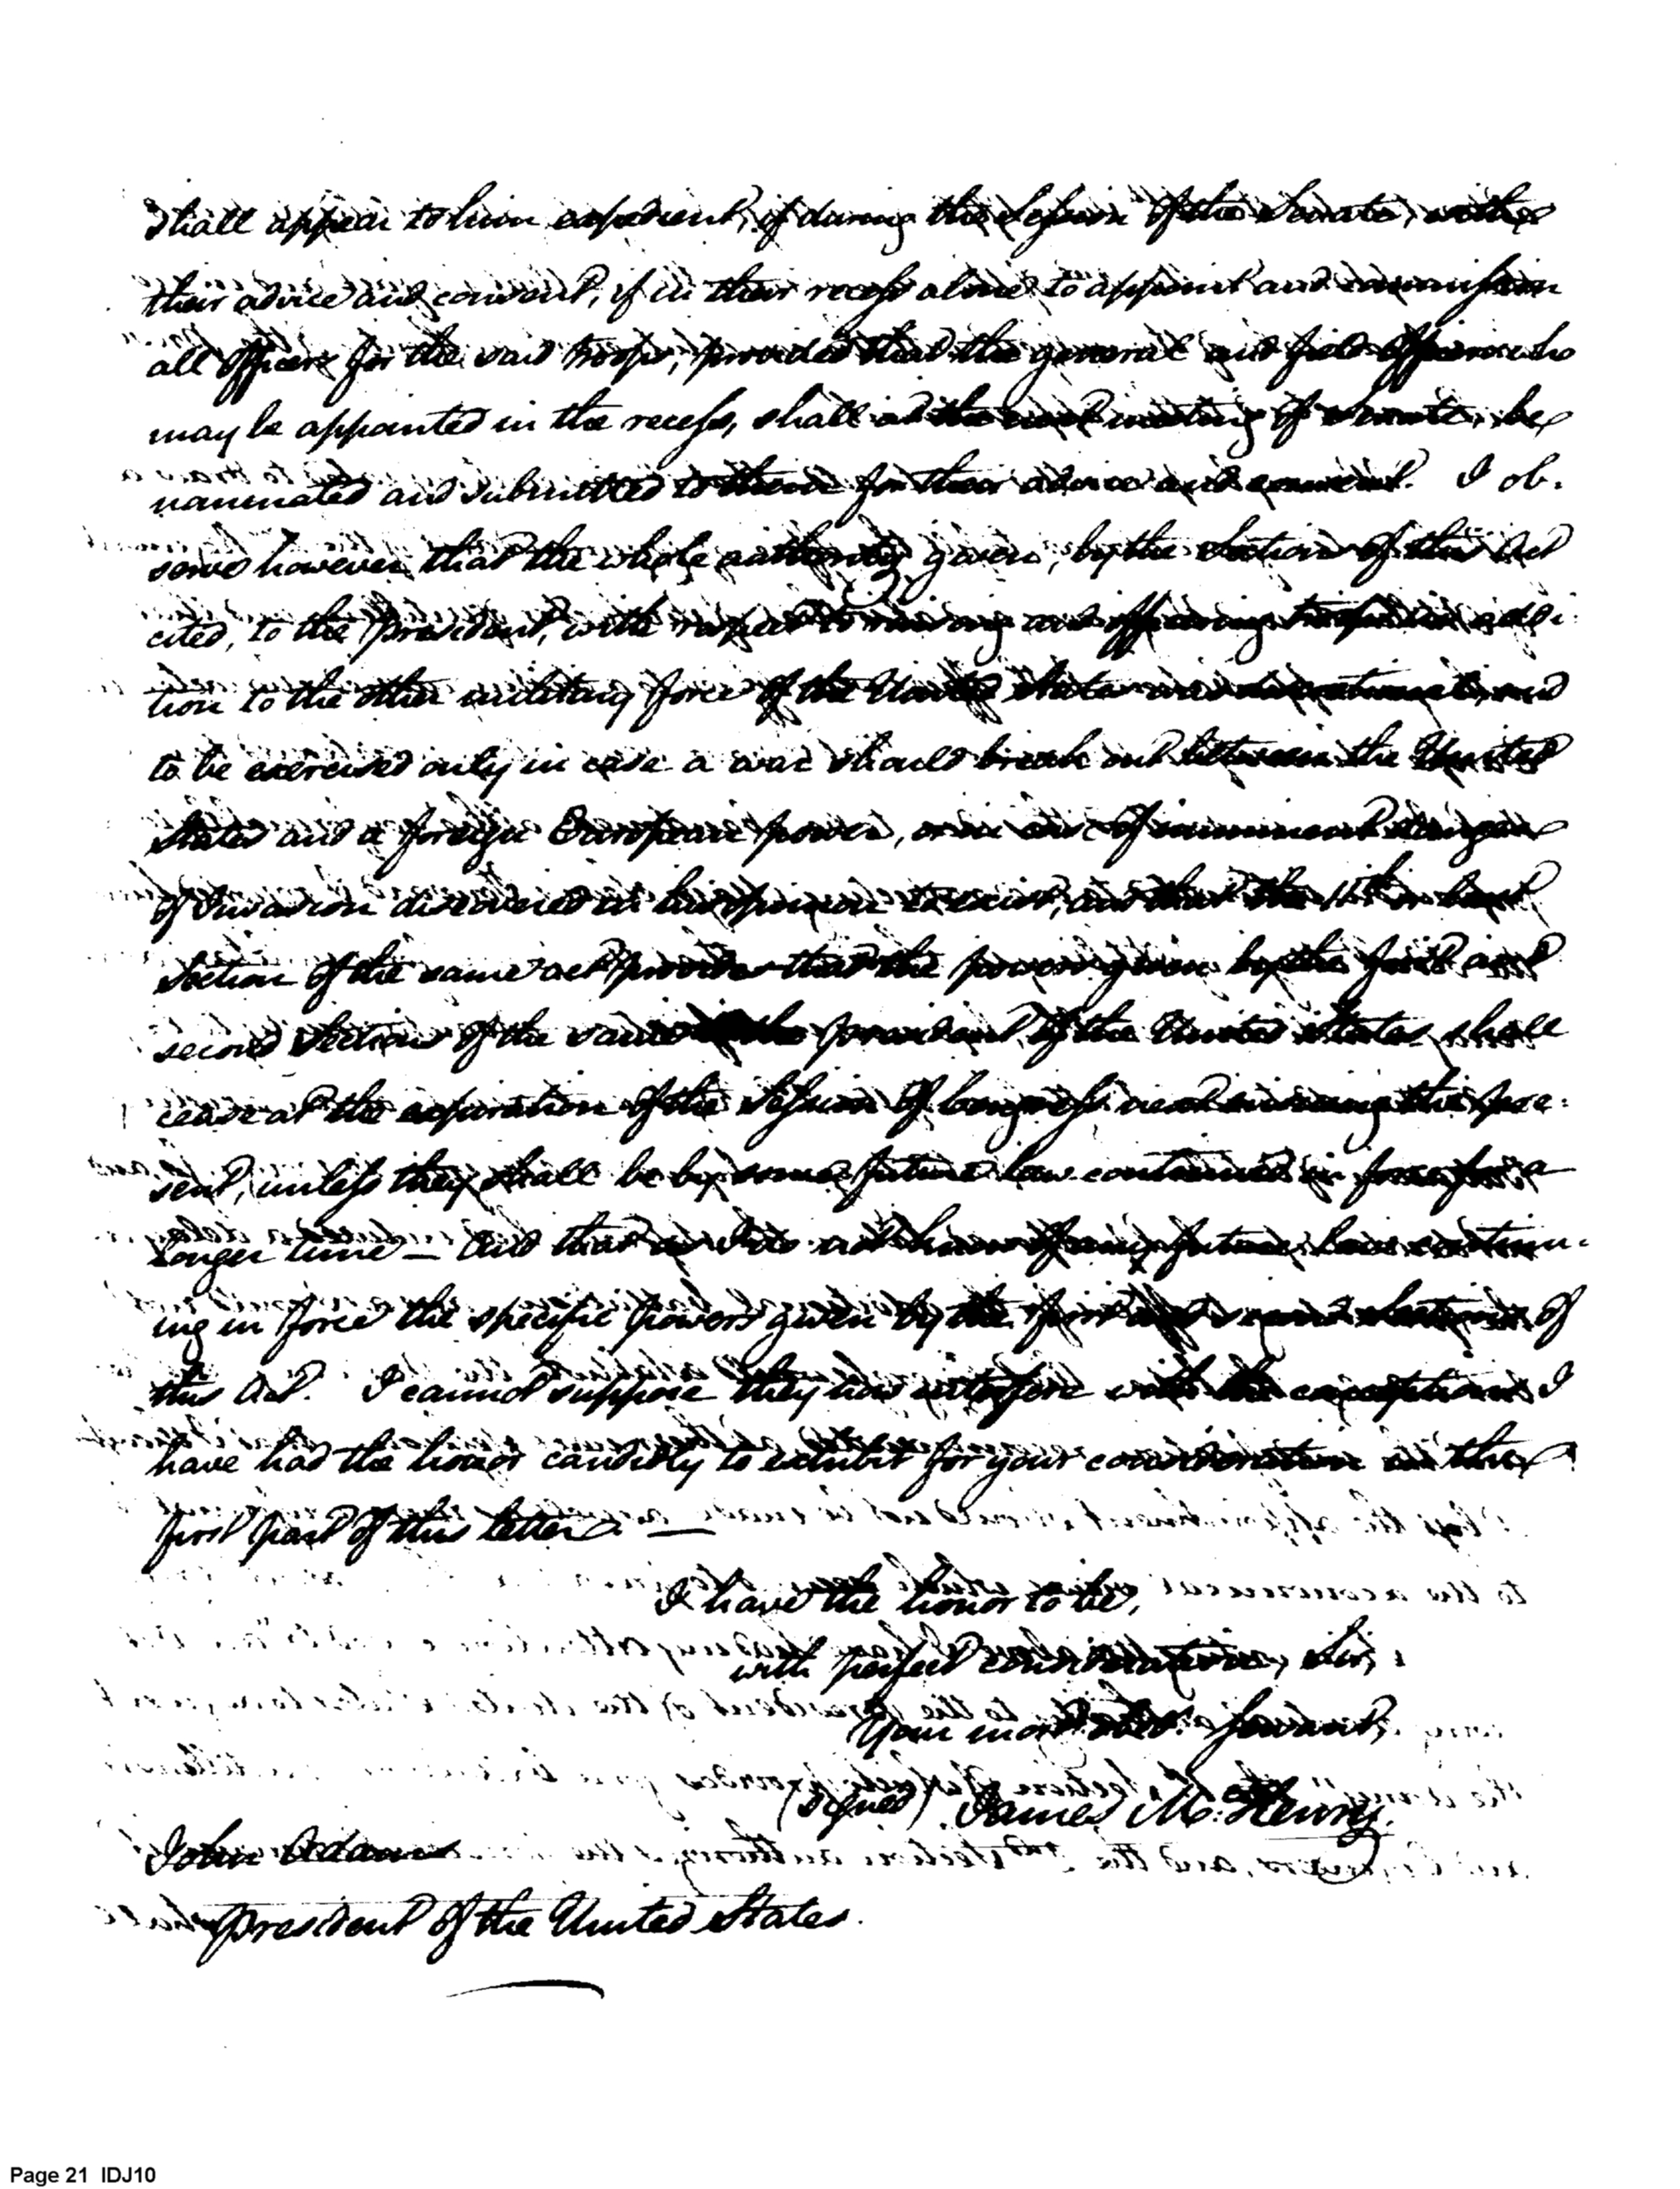 shall appear to him expedient, if during the Session of the Senate, with
their advice and consent, if in their recess alone to appoint and commission
all officers for the said troops, provided that the general and field officers who
may be appointed in the recess, shall at the next meeting of Senate, be
nominated and submitted to them for their advice and consent. I ob-
serve however, that the whole authority given, by the Section of this Act
cited, to the President, with respect to raising and officering troops in addi-
tion to the other military force of the United States was and
to be exercised only in case a war should break out between the United
States and a foreign European power, or in case of imminent danger
of Invasion discovered in his opinion to exist, and that the 11th or last
Section of the same act provides that the powers given by the first and
second Sections of the same to the president of the United States shall
cease at the expiration of the Session of Congress next ensuing the pre-
sent, unless they shall be by some future law continued in force for a
longer time — And that as I do not know of any future law continu-
ing in force the specific powers given by the first and second sections of
this Act. I cannot suppose they now interfere with the exceptions I
have had the honor candidly to exhibit for your consideration in the
first part of this letter. —
I have the honor to be,
with perfect consideration, Sir,
Your most obed. Servant,
(signed) James McHenry.
John Adams
President of the United States.
Page 21 IDJ10